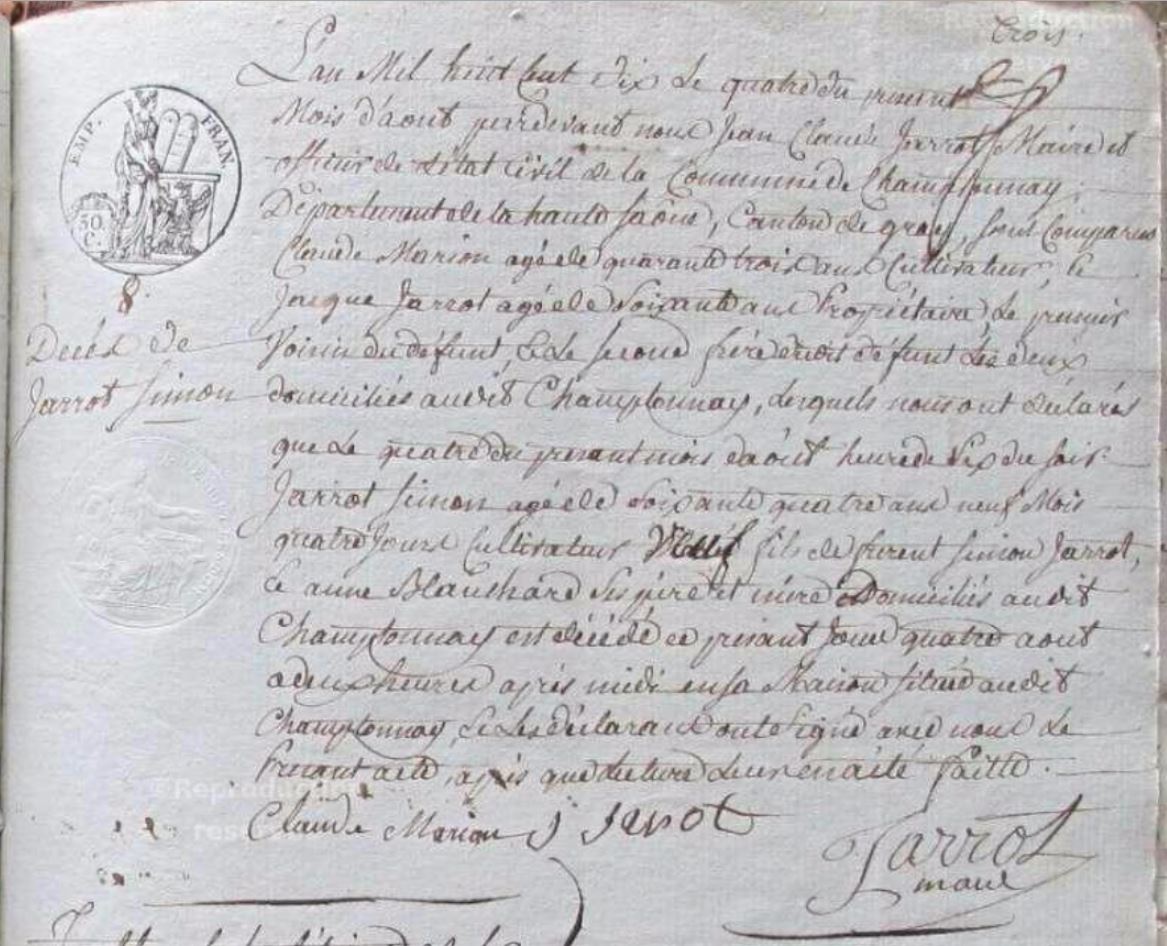 trois.
L'an Mil huit Cent dix Le quatre du present
Mois d'aout pardevant nous Jean Claude Jarrot Maire et
officier de l'état Civil de la Commune de Champtonnay,
Département de la haute saône, Canton de gray, sont Comparus
Claude Marion agé de quarante trois ans Cultivateur Et
Jacque Jarrot agé de Soixante ans Propriétaire, Le premier
Voisin du défunt, Et Le second frère dudit défunt Les deux
domiciliés audit Champtonnay, lesquels nous ont déclarés
que Le quatre du present mois d'août heure de Six du soir
Jarrot Simon agé de Soixante quatre ans neuf Mois
quatre Jours Cultivateur fils de furent Simon Jarrot,
Et anne Blanchard Ses père et mère Domiciliés audit
Champtonnay est décédé ce présant Jour quatre aout
a deux heures après midi en sa Maison située audit
Champtonnay, Et Les déclarans ont Signé avec nous Le
Present acte, après que lecture Leur en a été faitte.
EMP. FRAN.
50.
C.
8.
Decès de
Jarrot Simon
Claude Marion J Jarot
Jarrot
maire
©Reproduction
réservée